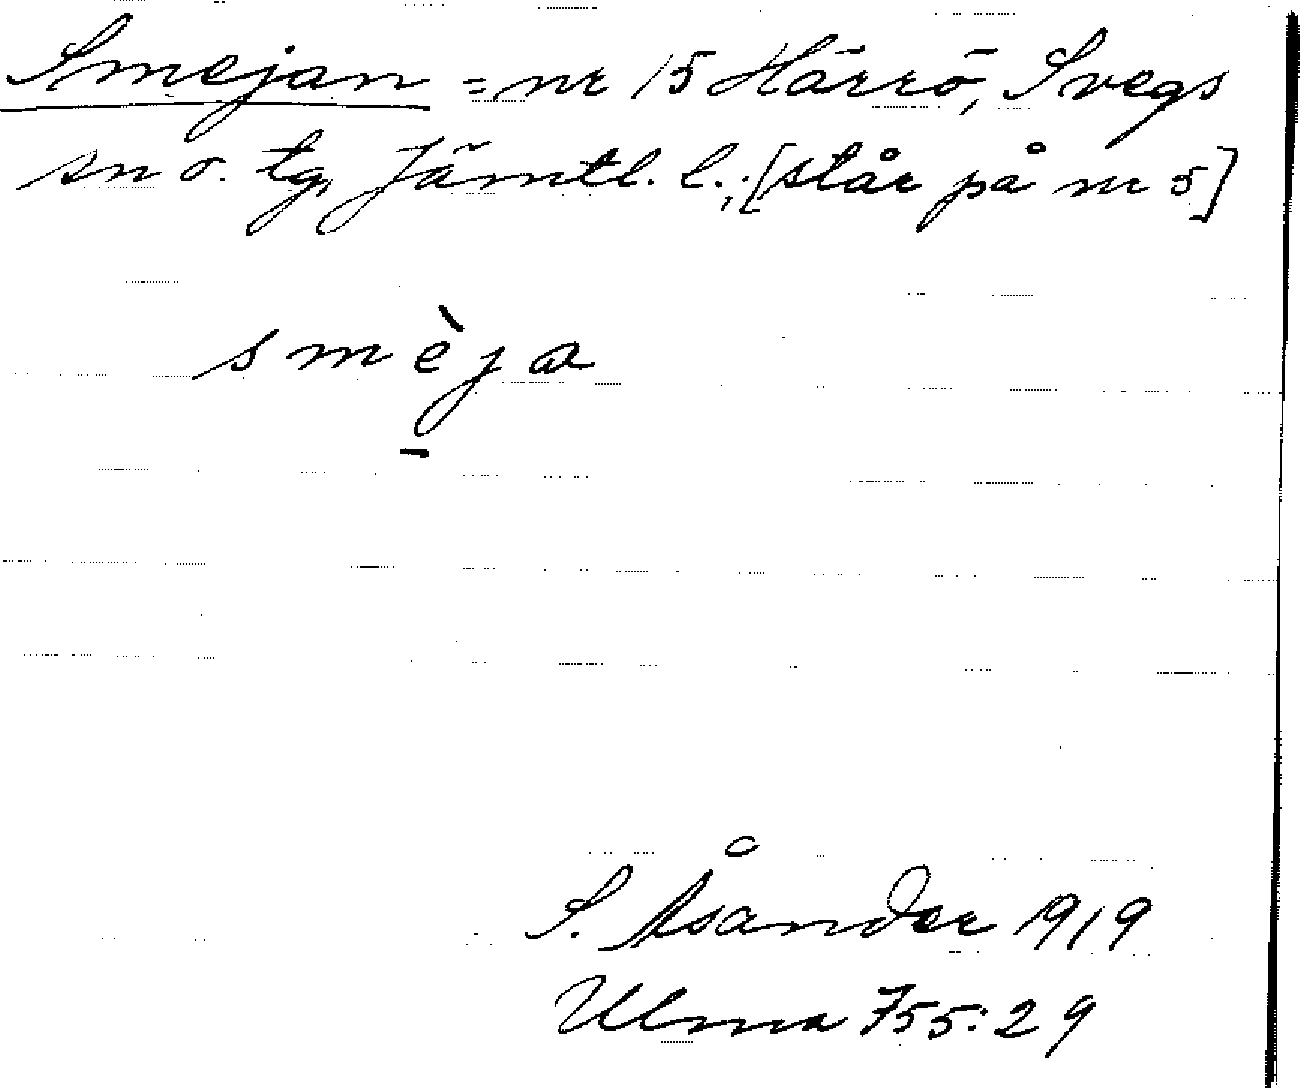 Smejan = nr 15 Härrö, Svegs
sn o. tg, Jämtl. l.; [står på nr 5]
smèja
S. Åsander 1919
Ulma 755:29